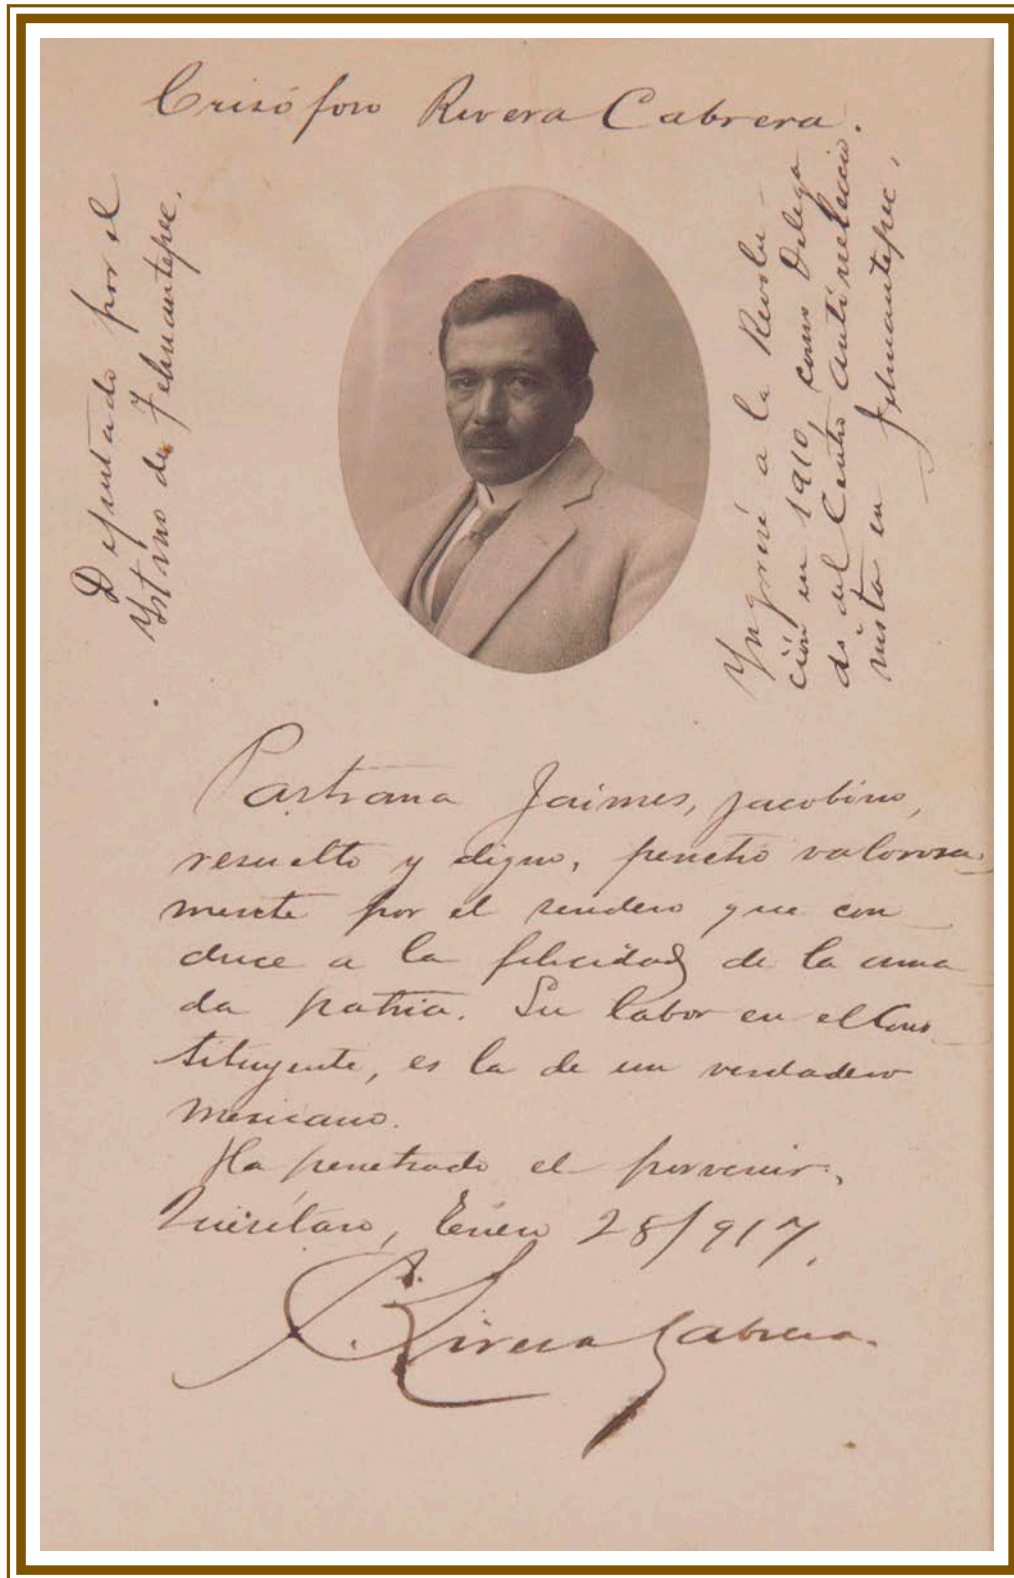 Crisóforo Rivera Cabrera.
Diputado por el
Ystmo de Tehuantepec.
Yngresé a la Revolu-
ción en 1910, como Delega
do del Centro Antirreleccio
nista en Tehuantepec,
Pastrana Jaimes, jacobino,
resuelto y digno, penetró valorosa-
mente por el sendero que con
duce a la felicidad de la ama
da patria. Su labor en el Cons
tituyente, es la de un verdadero
mexicano.
Ha penetrado el porvenir.
Querétaro, Enero 28/917.
C. Rivera Cabrera.